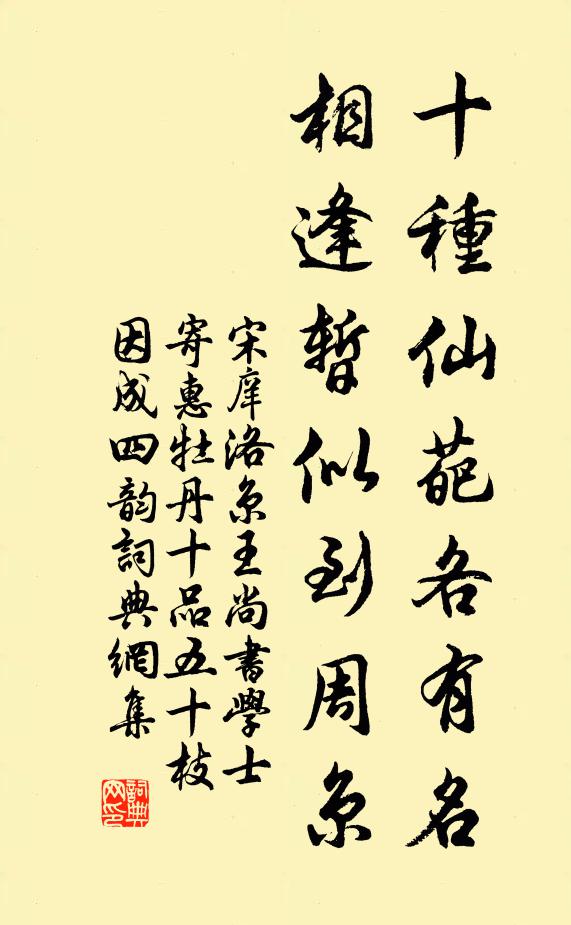 十種仙葩各有名
相逢暫似到周京
宋庠洛京王尚書學士
寄惠牡丹十品五十枝
因成四韵詞典網集
詞典
网印